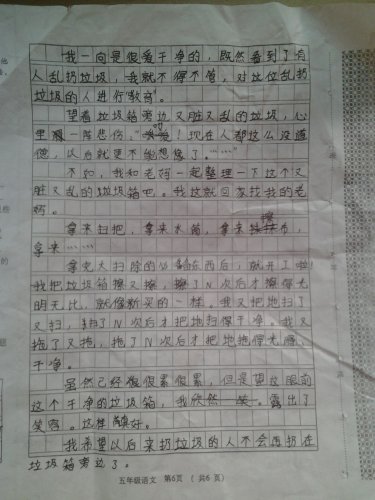 我一向是很爱干净的，既然看到了有
人乱扔垃圾，我就不得不管，对这位乱扔
垃圾的人进行"教育"。
望着垃圾箱旁边又脏又乱的垃圾，心
里一阵悲伤。"唉！现在人都这么没道
德，以后就更不能想像了。……"
不如，我和老妈一起整理一下这个又
脏又乱的垃圾箱吧。我这就回家找我的老
妈。
拿来扫把，拿来水箱，拿来擦布，
拿来……
拿完大扫除的必备东西后，就开工啦！
我把垃圾箱擦又擦，擦了N次后才擦得光
明无比，就像新买的一样。我又把地扫了
又扫，扫了N次后才把地扫得干净。我又
拖了又拖，拖了N次后才把地拖得光滑、
干净。
虽然已经很很累很累，但是望这眼前
这个干净的垃圾箱，我欣然一笑。露出了
笑容。这样真好。
我希望以后来扔垃圾的人不会再扔在
垃圾箱旁边了。
五年级语文 第6页 （共6页）